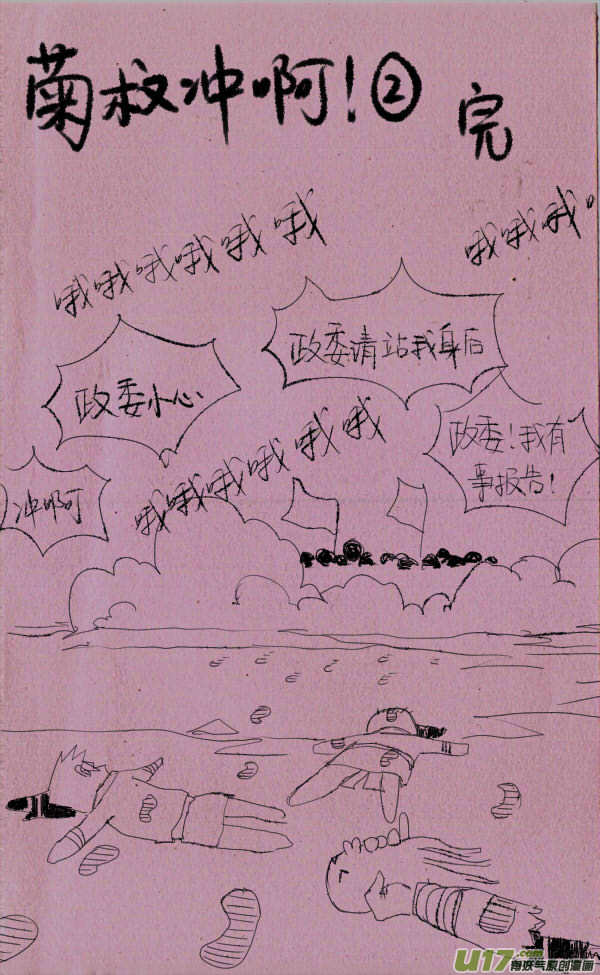 菊救冲啊!②
完
哦哦哦哦哦哦
哦哦哦
政委请站我身后
政委小心
政委!我有
事报告!
哦哦哦哦哦哦
冲啊
U17.com
有妖气原创漫画